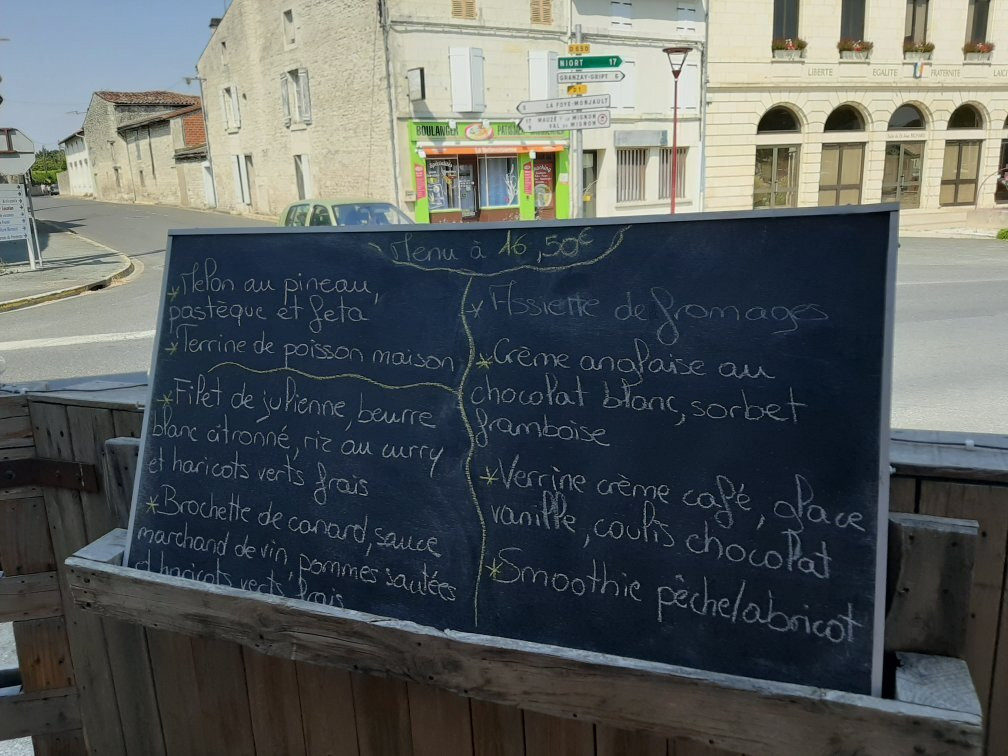 D 650
NIORT 17
GRANZAY-GRIPT 6
D 1
LA FOYE-MONJAULT
MAUZÉ S LE MIGNON
VAL DU MIGNON
BOULANGER
LIBERTE EGALITE FRATERNITE
Menu à 16,50€
*Melon au pineau,
pastèque et feta
*Terrine de poisson maison
*Filet de julienne, beurre
blanc citronné, riz au curry
et haricots verts frais
*Brochette de canard, sauce
marchand de vin, pommes sautées
et haricots verts frais
*Assiette de fromages
*Crème anglaise au
chocolat blanc, sorbet
framboise
*Verrine crème café, glace
vanille, coulis chocolat
*Smoothie pêche/abricot